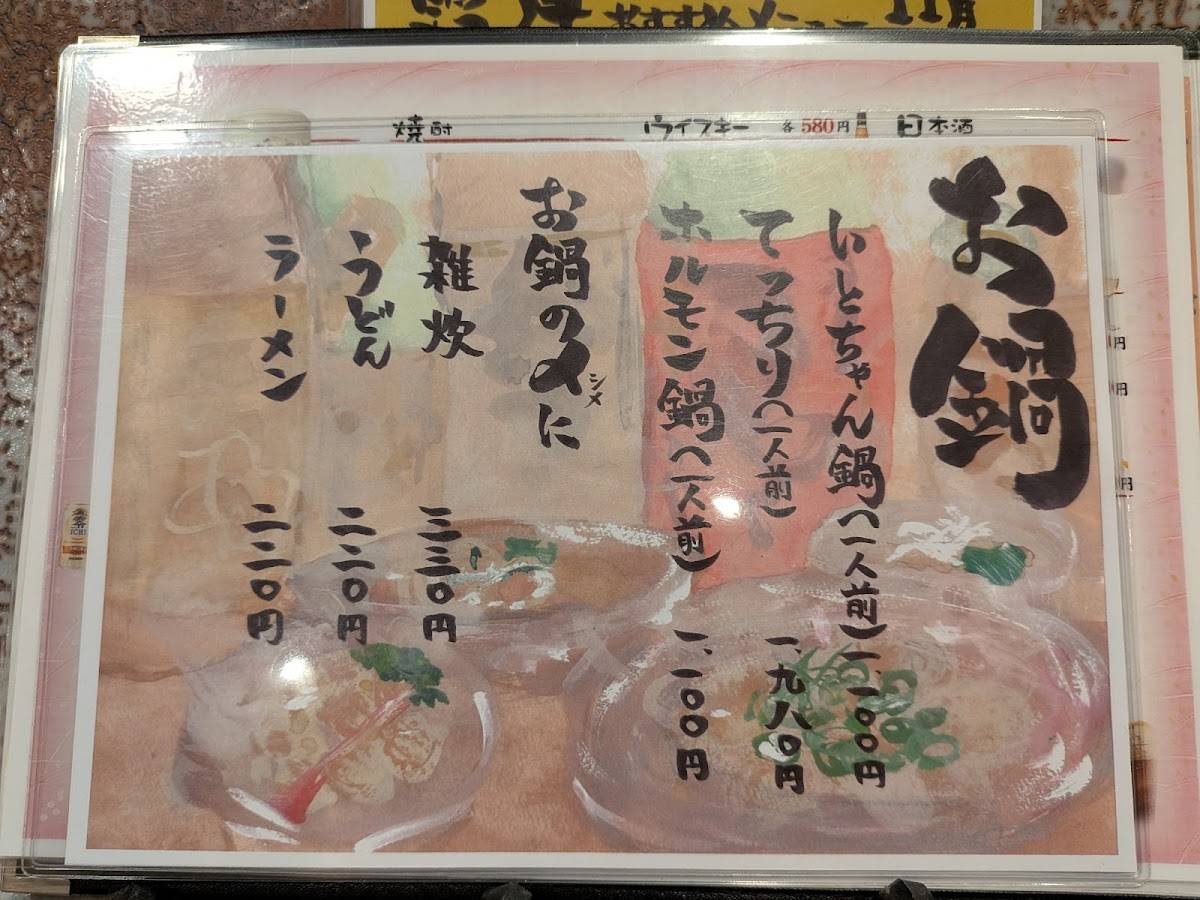 おすすめメニュー 11月
焼酎
ウイスキー 各580円
日本酒
お鍋
いとちゃん鍋(一人前) 一、一〇〇円
てっちり(一人前) 一、九八〇円
ホルモン鍋(一人前) 一、一〇〇円
お鍋の〆に
シメ
雑炊 三三〇円
うどん 二二〇円
ラーメン 二二〇円